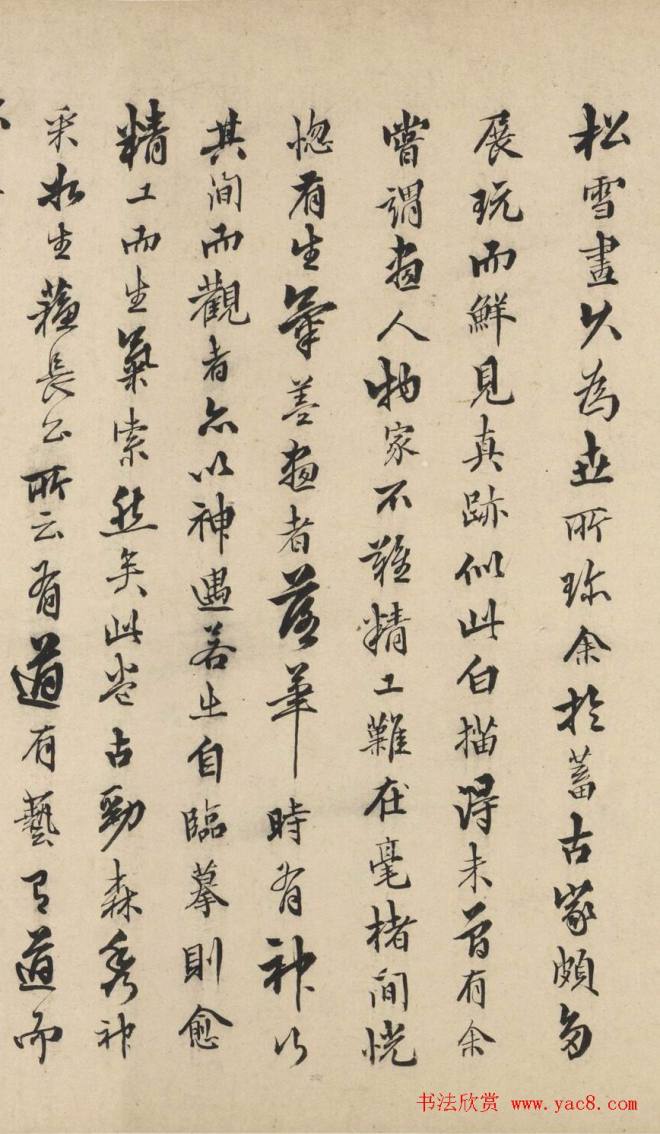 松雪畫久為世所珍余於蓄古家頗多
展玩而鮮見真跡似此白描得未曾有余
嘗謂畫人物家不難精工難在毫楮間恍
惚有生氣善畫者落筆時有神行
其間而觀者亦以神遇若出自臨摹則愈
精工而生氣索然矣此卷古勁森秀神
采如生蘇長公所云有道有藝有道而
书法欣赏 www.yac8.com